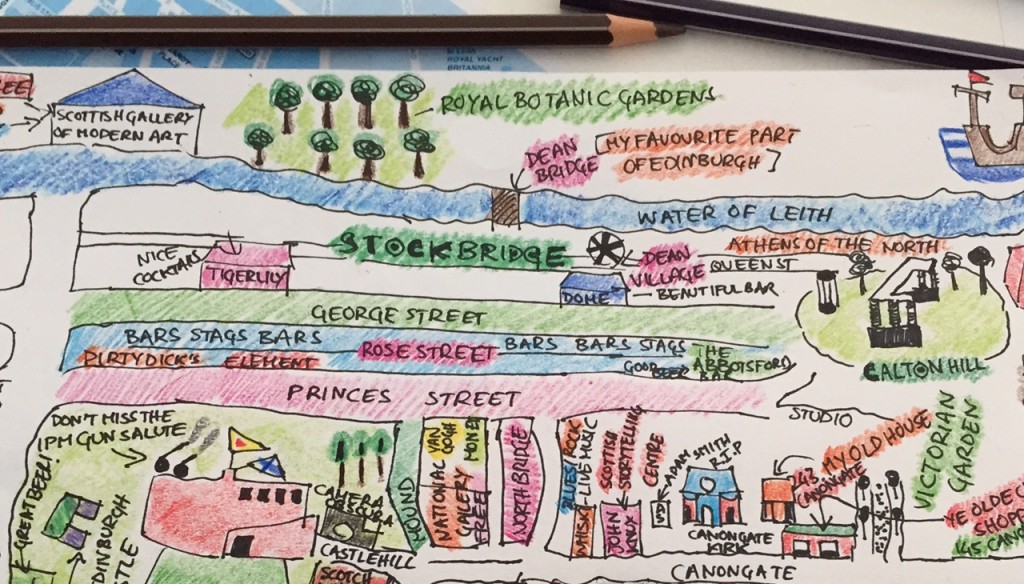 ROYAL YACHT
BRITANNIA
SCOTTISH GALLERY
OF MODERN ART
ROYAL BOTANIC GARDENS
DEAN
BRIDGE
[MY FAVOURITE PART
OF EDINBURGH]
WATER OF LEITH
NICE
COCKTAILS
TIGERLILY
STOCKBRIDGE
DEAN
VILLAGE
ATHENS OF THE NORTH
QUEEN ST
DOME
BEAUTIFUL BAR
GEORGE STREET
BARS STAGS BARS
ROSE STREET
BARS BARS STAGS
DIRTY DICK'S ELEMENT
GOOD
BEER
THE
ABBOTSFORD
BAR
CALTON HILL
PRINCES STREET
STUDIO
DON'T MISS THE
1PM GUN SALUTE
GREAT BEER!
EDINBURGH
CAMERA
OBSCURA
CASTLEHILL
SCOTCH
MOUND
NATIONAL
GALLERY
FREE
VAN
GOGH
MONET
NORTHBRIDGE
BLUES ROCK
LIVE MUSIC
WHISKI
SCOTTISH
STORYTELLING
CENTRE
JOHN
KNOX
ADAM SMITH
R.I.P
CANONGATE
KIRK
CANONGATE
243
CANONGATE
MY OLD HOUSE
VICTORIAN
GARDEN
YE OLDE
SHOPP